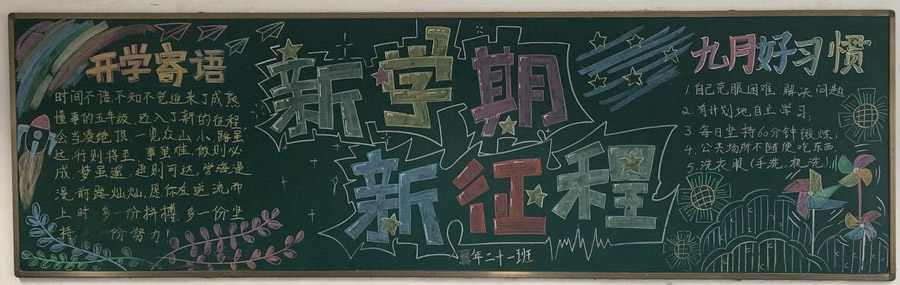 开学寄语
时间不语,不知不觉迎来了成熟
懂事的五年级,迈入了新的征程
会当凌绝顶,一览众山小,路虽
远,行则将至,事虽难,做则必
成,梦虽遥,追则可达,学海漫
漫,前路灿灿,愿你在逆流而
上时多一份拼搏,多一份坚
持,一份努力!
新学期
新征程
年二十一班
九月好习惯
1.自己克服困难,解决问题
2.有计划地自主学习,
3.每日坚持60分钟锻炼,
4.公共场所不随便吃东西,
5.洗衣服(手洗,机洗),